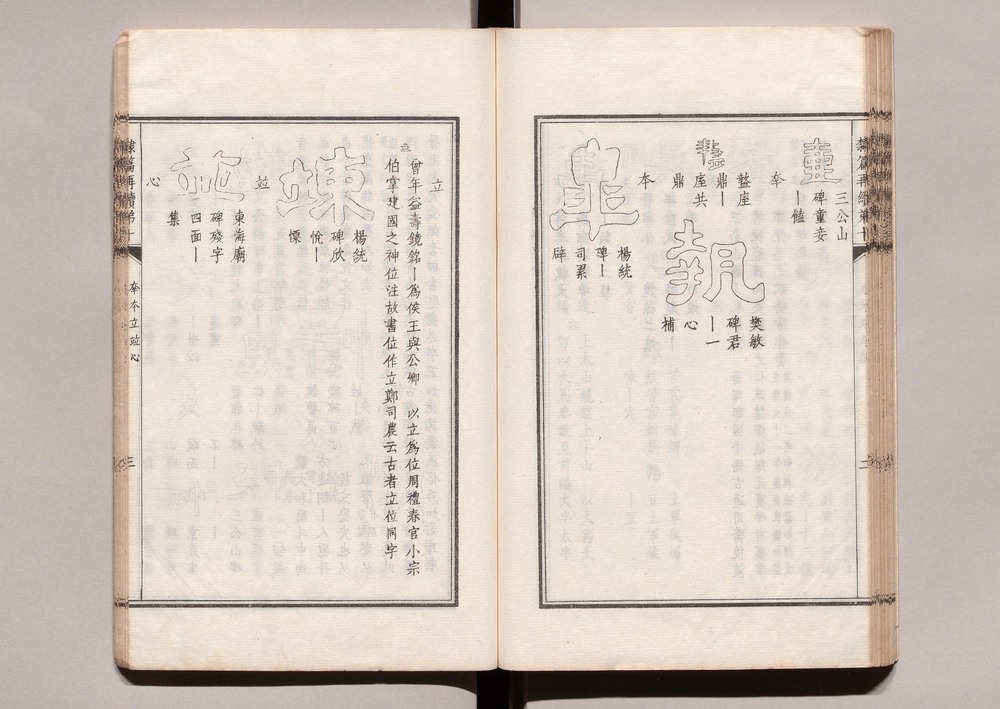 隸篇再續第十
二
三公山
碑童妾
丨饐
㚔
盩
盩座
鼎丨
座共
鼎
執
樊敏
碑君
丨一
心
補
夲
皐
楊統
碑丨
司累
辟
立
曾年益壽鏡銘丨爲侯王與公卿 以立爲位周禮春官小宗
伯掌建國之神位注故書位作立鄭司農云古者立位同字
竦
楊統
碑欣
悅丨
慄
竝
東海廟
碑殘字
四面丨
集
心
隸篇再續第十
㚔夲立竝心
三